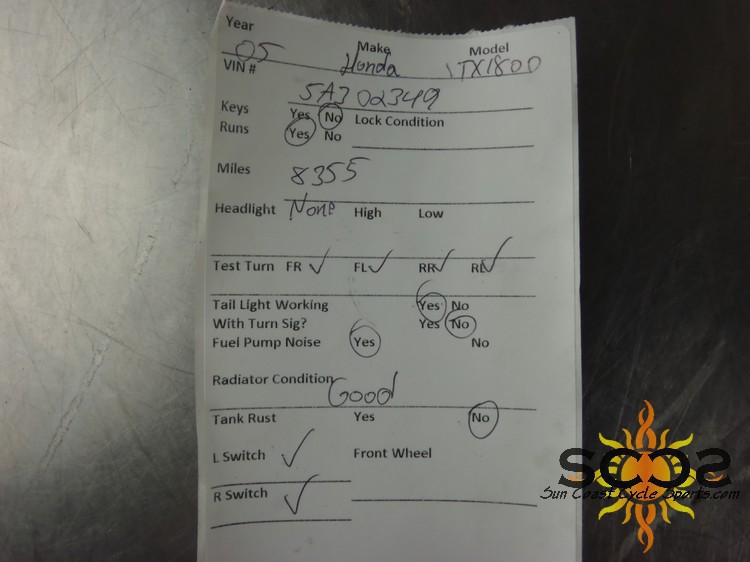 Year Make Model
05 Honda VTX1800
VIN # 5A302349
Keys Yes No Lock Condition
Runs Yes No
Miles 8355
Headlight None High Low
Test Turn FR ✓ FL ✓ RR ✓ RL ✓
Tail Light Working Yes No
With Turn Sig? Yes No
Fuel Pump Noise Yes No
Radiator Condition Good
Tank Rust Yes No
L Switch ✓ Front Wheel
R Switch ✓
SCCS
Sun Coast Cycle Sports.com